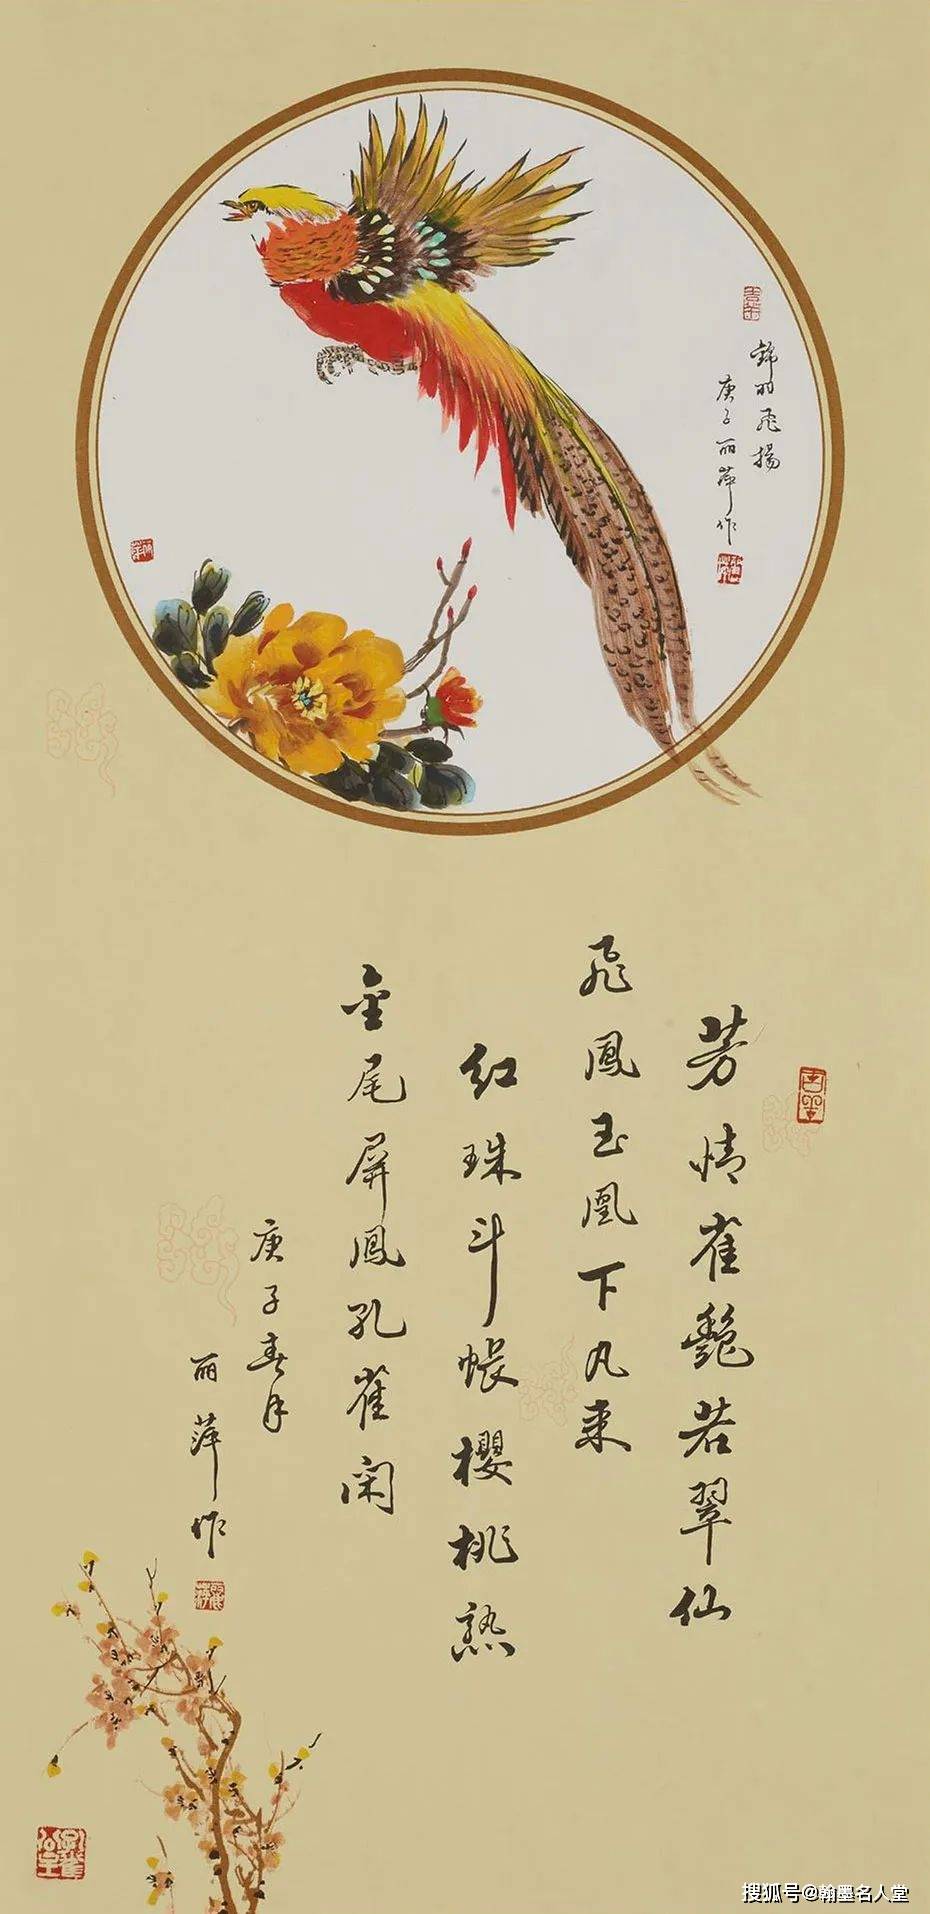 锦羽飞扬
庚子丽萍作
芳情雀艷若翠仙
飛鳳玉凰下丸来
紅珠斗帳櫻桃熟
金尾屏鳳孔雀闲
庚子春月
丽萍作
搜狐号@翰墨名人堂